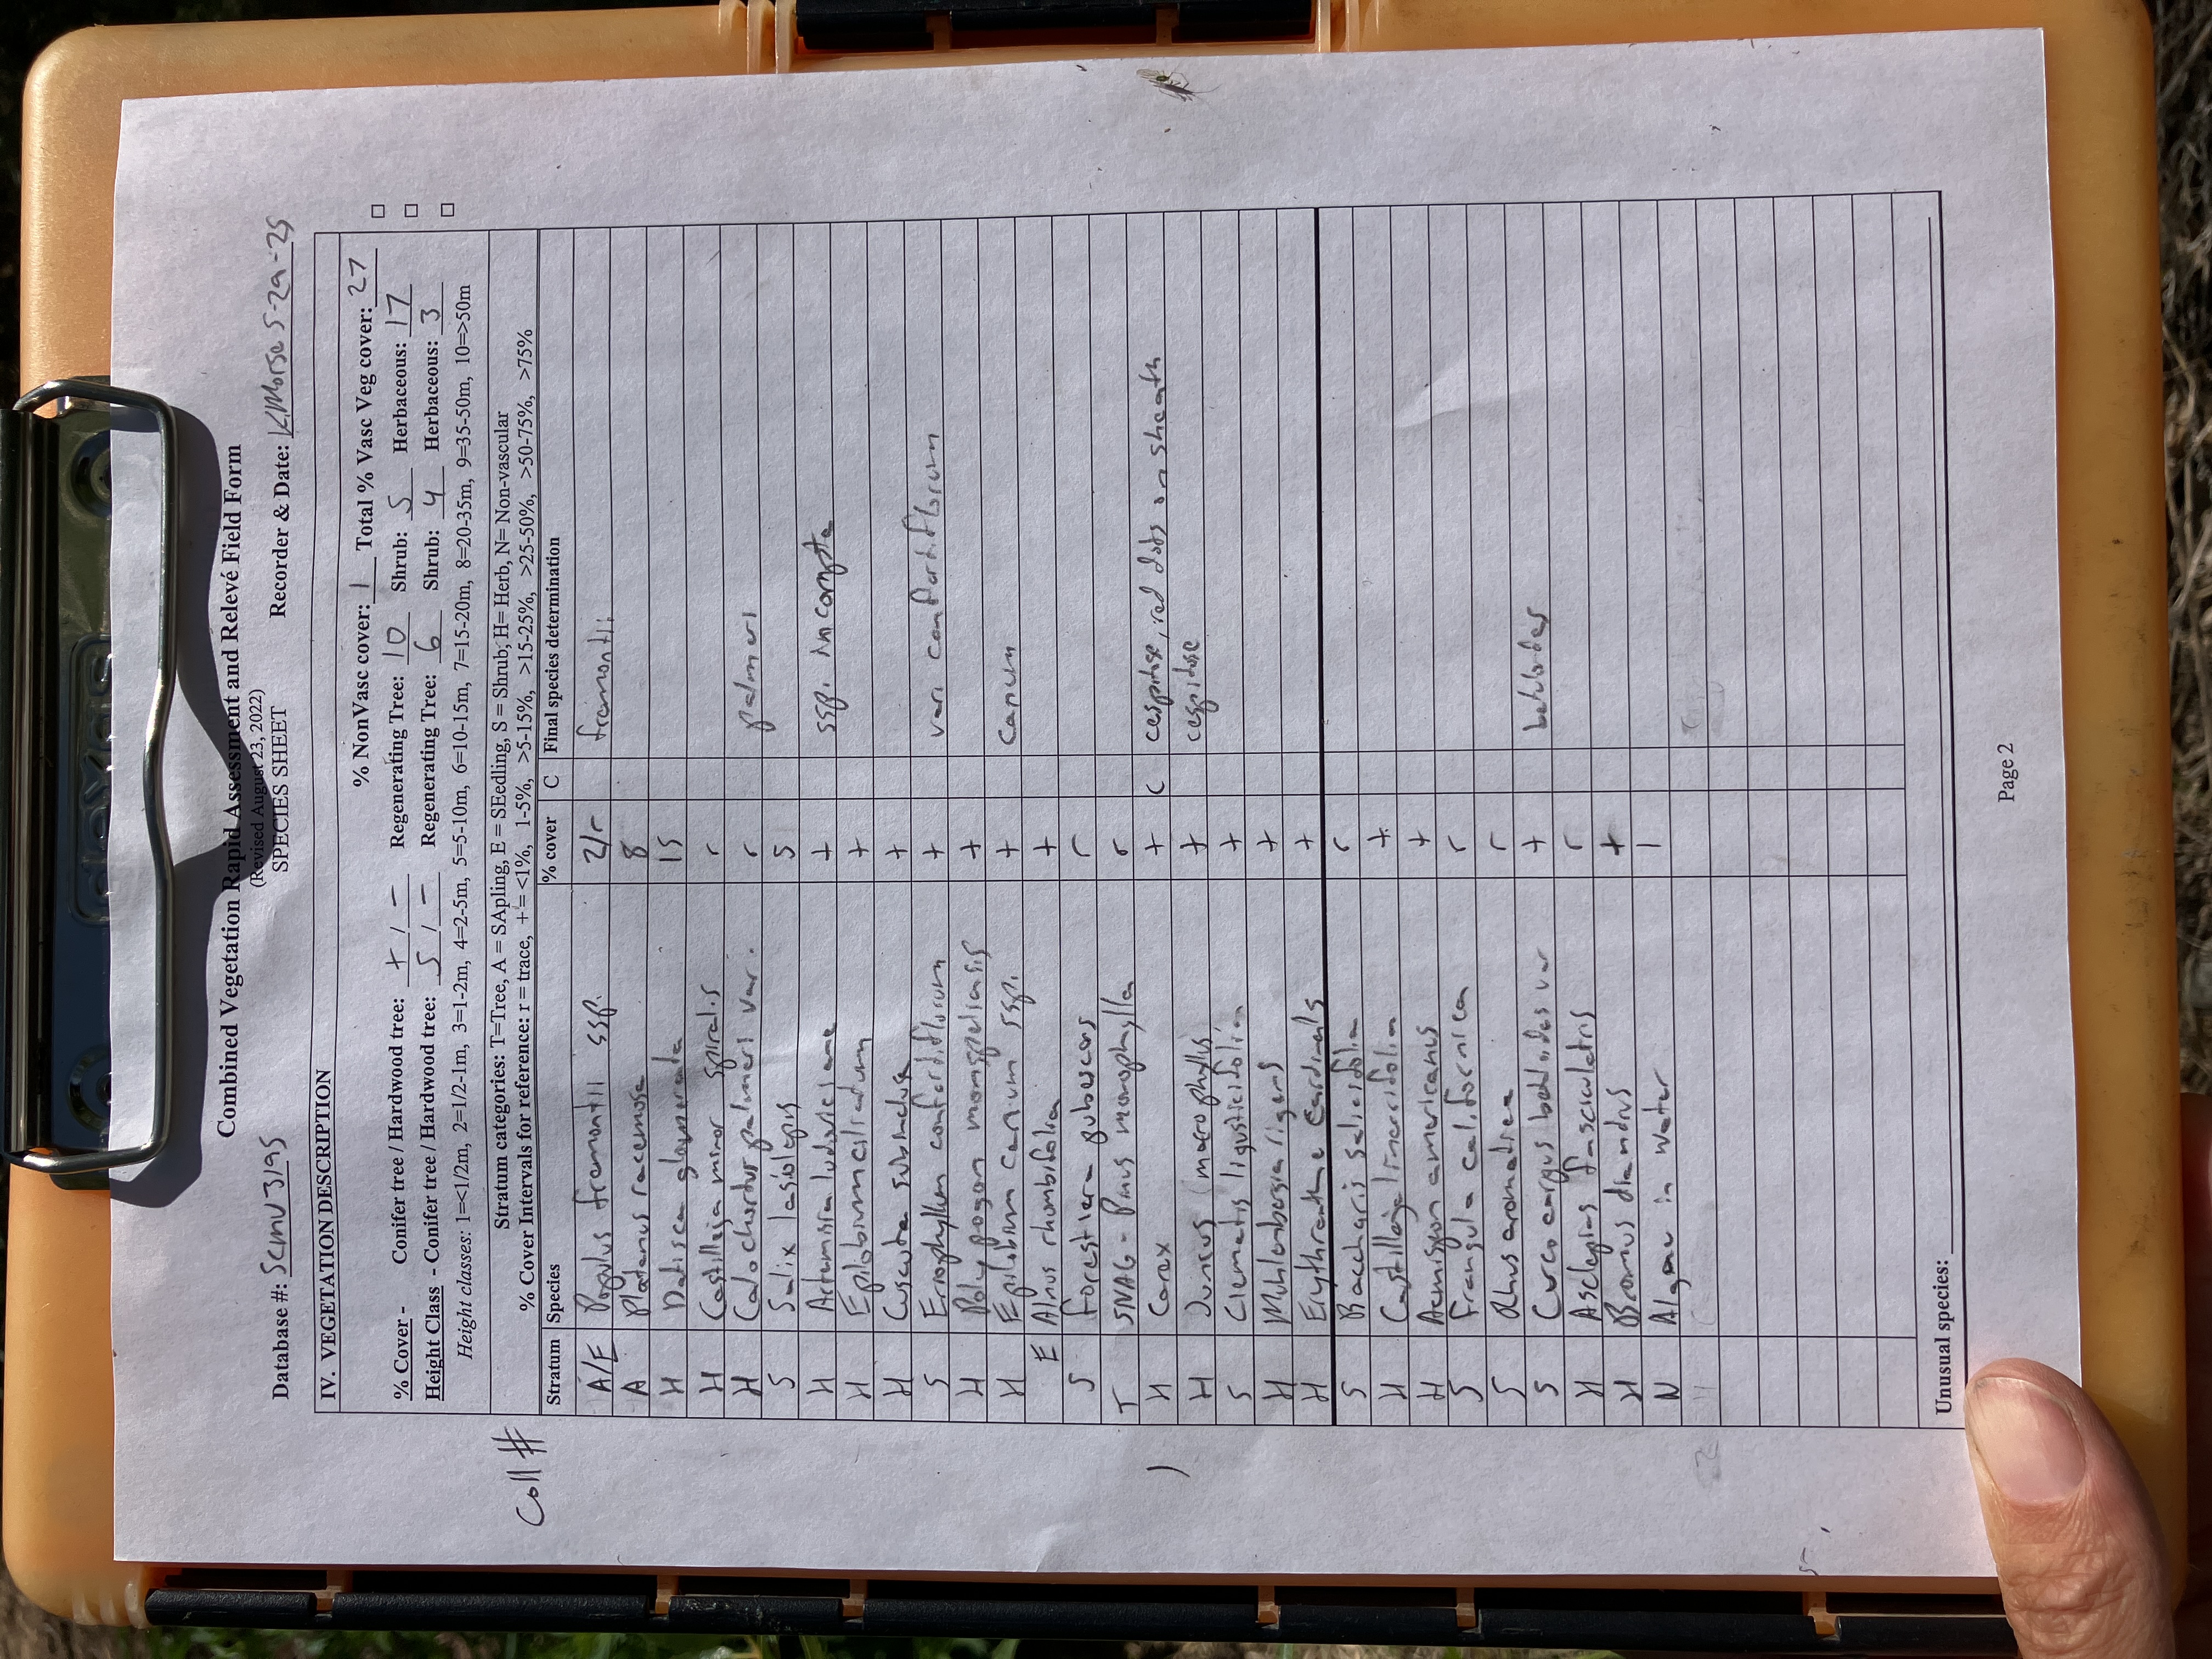 Combined Vegetation Rapid Assessment and Relevé Field Form
(Revised August 23, 2022)
SPECIES SHEET
Database #: Scmv3195 Recorder & Date: KMorse 5-29-25
IV. VEGETATION DESCRIPTION
% NonVasc cover: 1 Total % Vasc Veg cover: 27
% Cover - Conifer tree / Hardwood tree: + / - Regenerating Tree: 10 Shrub: 5 Herbaceous: 17
Height Class - Conifer tree / Hardwood tree: 5 / - Regenerating Tree: 6 Shrub: 4 Herbaceous: 3
Height classes: 1=<1/2m, 2=1/2-1m, 3=1-2m, 4=2-5m, 5=5-10m, 6=10-15m, 7=15-20m, 8=20-35m, 9=35-50m, 10=>50m
Stratum categories: T=Tree, A = SApling, E = SEedling, S = Shrub, H= Herb, N= Non-vascular
% Cover Intervals for reference: r = trace, + = <1%, 1-5%, >5-15%, >15-25%, >25-50%, >50-75%, >75%
Coll # Stratum Species % cover C Final species determination
A/E Populus fremontii ssp. 2/r fremontii
A Platanus racemosa 8
H Datisca glomerata 15
H Castilleja minor spiralis r
H Calochortus palmeri var. r palmeri
S Salix lasiolepis 5
H Artemisia ludoviciana + ssp. incompta
H Epilobium ciliatum +
H Cuscuta subinclusa +
S Eriophyllum confertiflorum + var. confertiflorum
H Polypogon monspeliensis +
H Epilobium canum ssp. + canum
E Alnus rhombifolia +
S Forestiera pubescens r
T SNAG - Pinus monophylla r
1 H Carex + C cespitose, red dots on sheath
H Juncus (macrophyllus + cespitose
S Clematis ligusticifolia +
H Muhlenbergia rigens +
H Erythranthe cardinalis +
S Baccharis salicifolia r
H Castilleja linariifolia +
H Acmispon americanus +
S Frangula californica r
S Rhus aromatica r
S Cercocarpus betuloides var + betuloides
H Asclepias fascicularis r
H Bromus diandrus +
N Algae in water 1
Unusual species:
Page 2